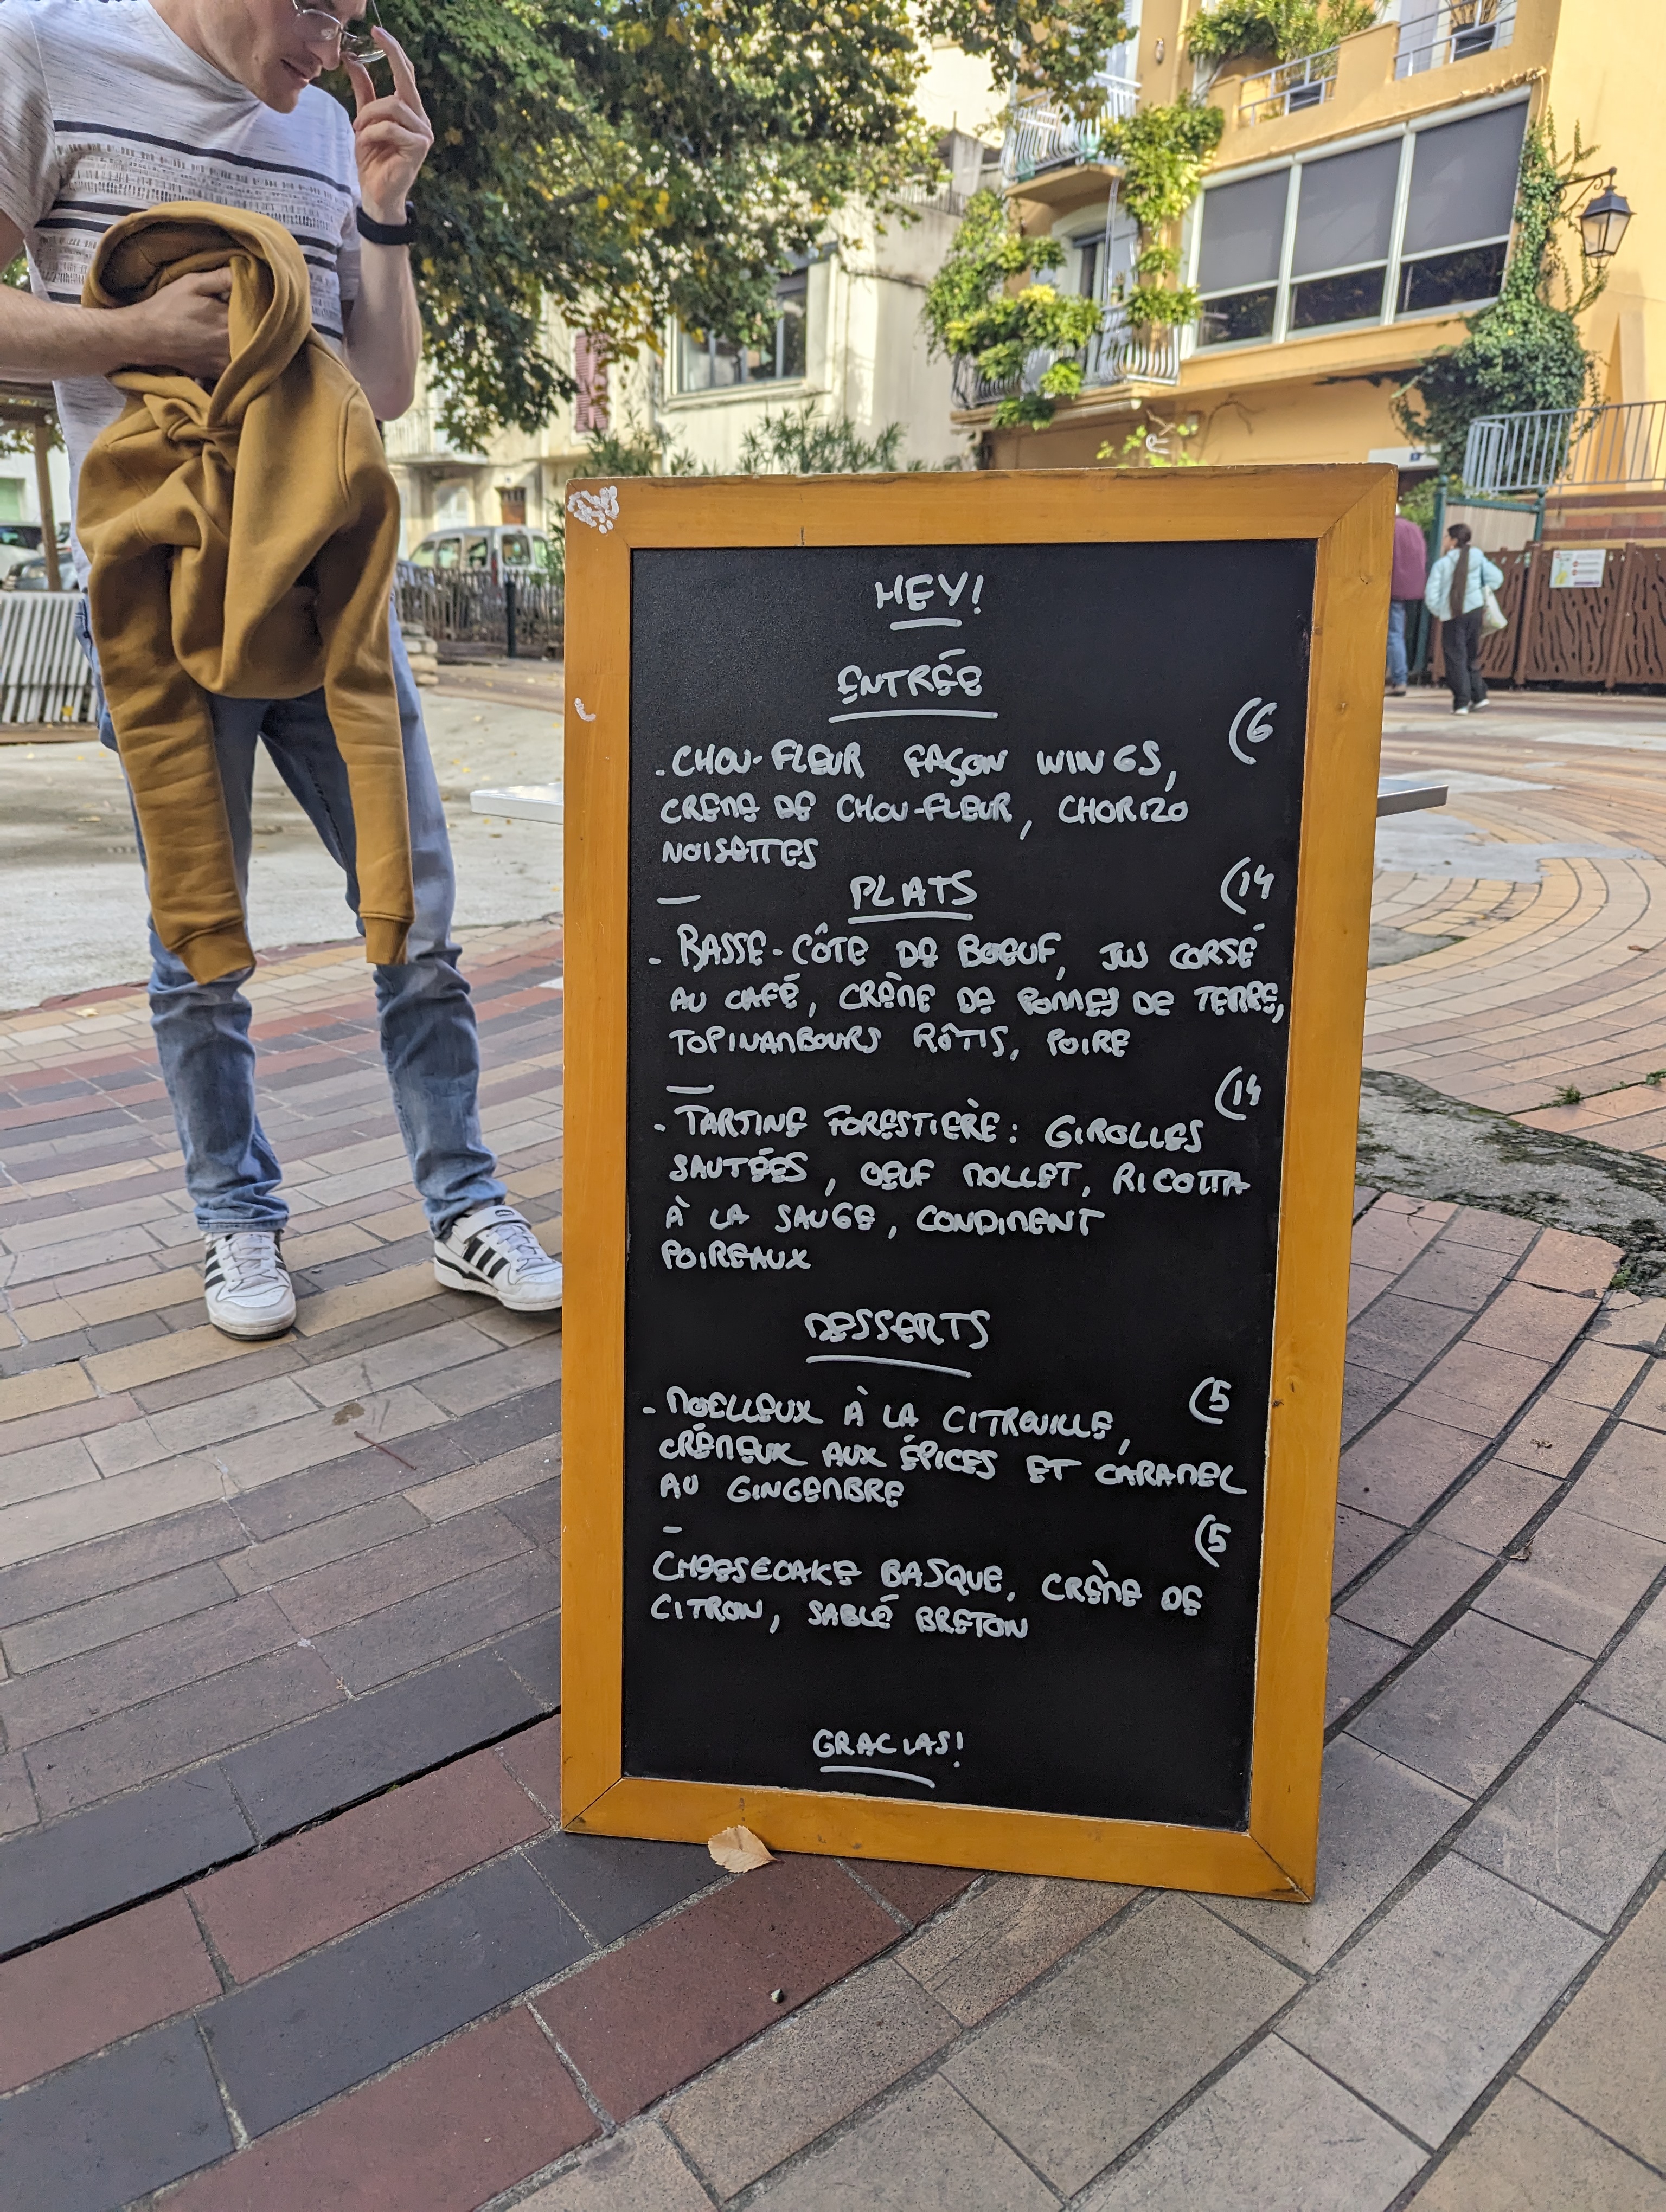 HEY!
ENTRÉE
(6
. CHOU-FLEUR FAÇON WINGS,
CREME DE CHOU-FLEUR, CHORIZO
NOISETTES
—
PLATS
(14
- BASSE-CÔTE DE BOEUF, JUS CORSÉ
AU CAFÉ, CRÈME DE POMMES DE TERRE,
TOPINAMBOURS RÔTIS, POIRE
—
(14
- TARTINE FORESTIÈRE : GIROLLES
SAUTÉES, OEUF MOLLET, RICOTTA
À LA SAUGE, CONDIMENT
POIREAUX
DESSERTS
(5
- MOELLEUX À LA CITROUILLE,
CRÉMEUX AUX ÉPICES ET CARAMEL
AU GINGEMBRE
-
(5
CHEESECAKE BASQUE, CRÈME DE
CITRON, SABLÉ BRETON
GRACIAS!